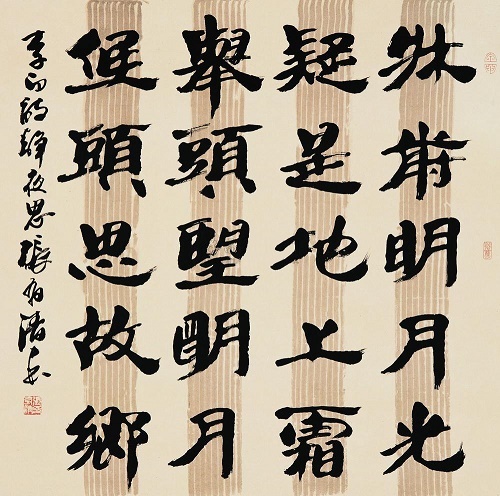 牀前明月光
疑是地上霜
舉頭望明月
低頭思故鄉
李白詩靜夜思張有清书